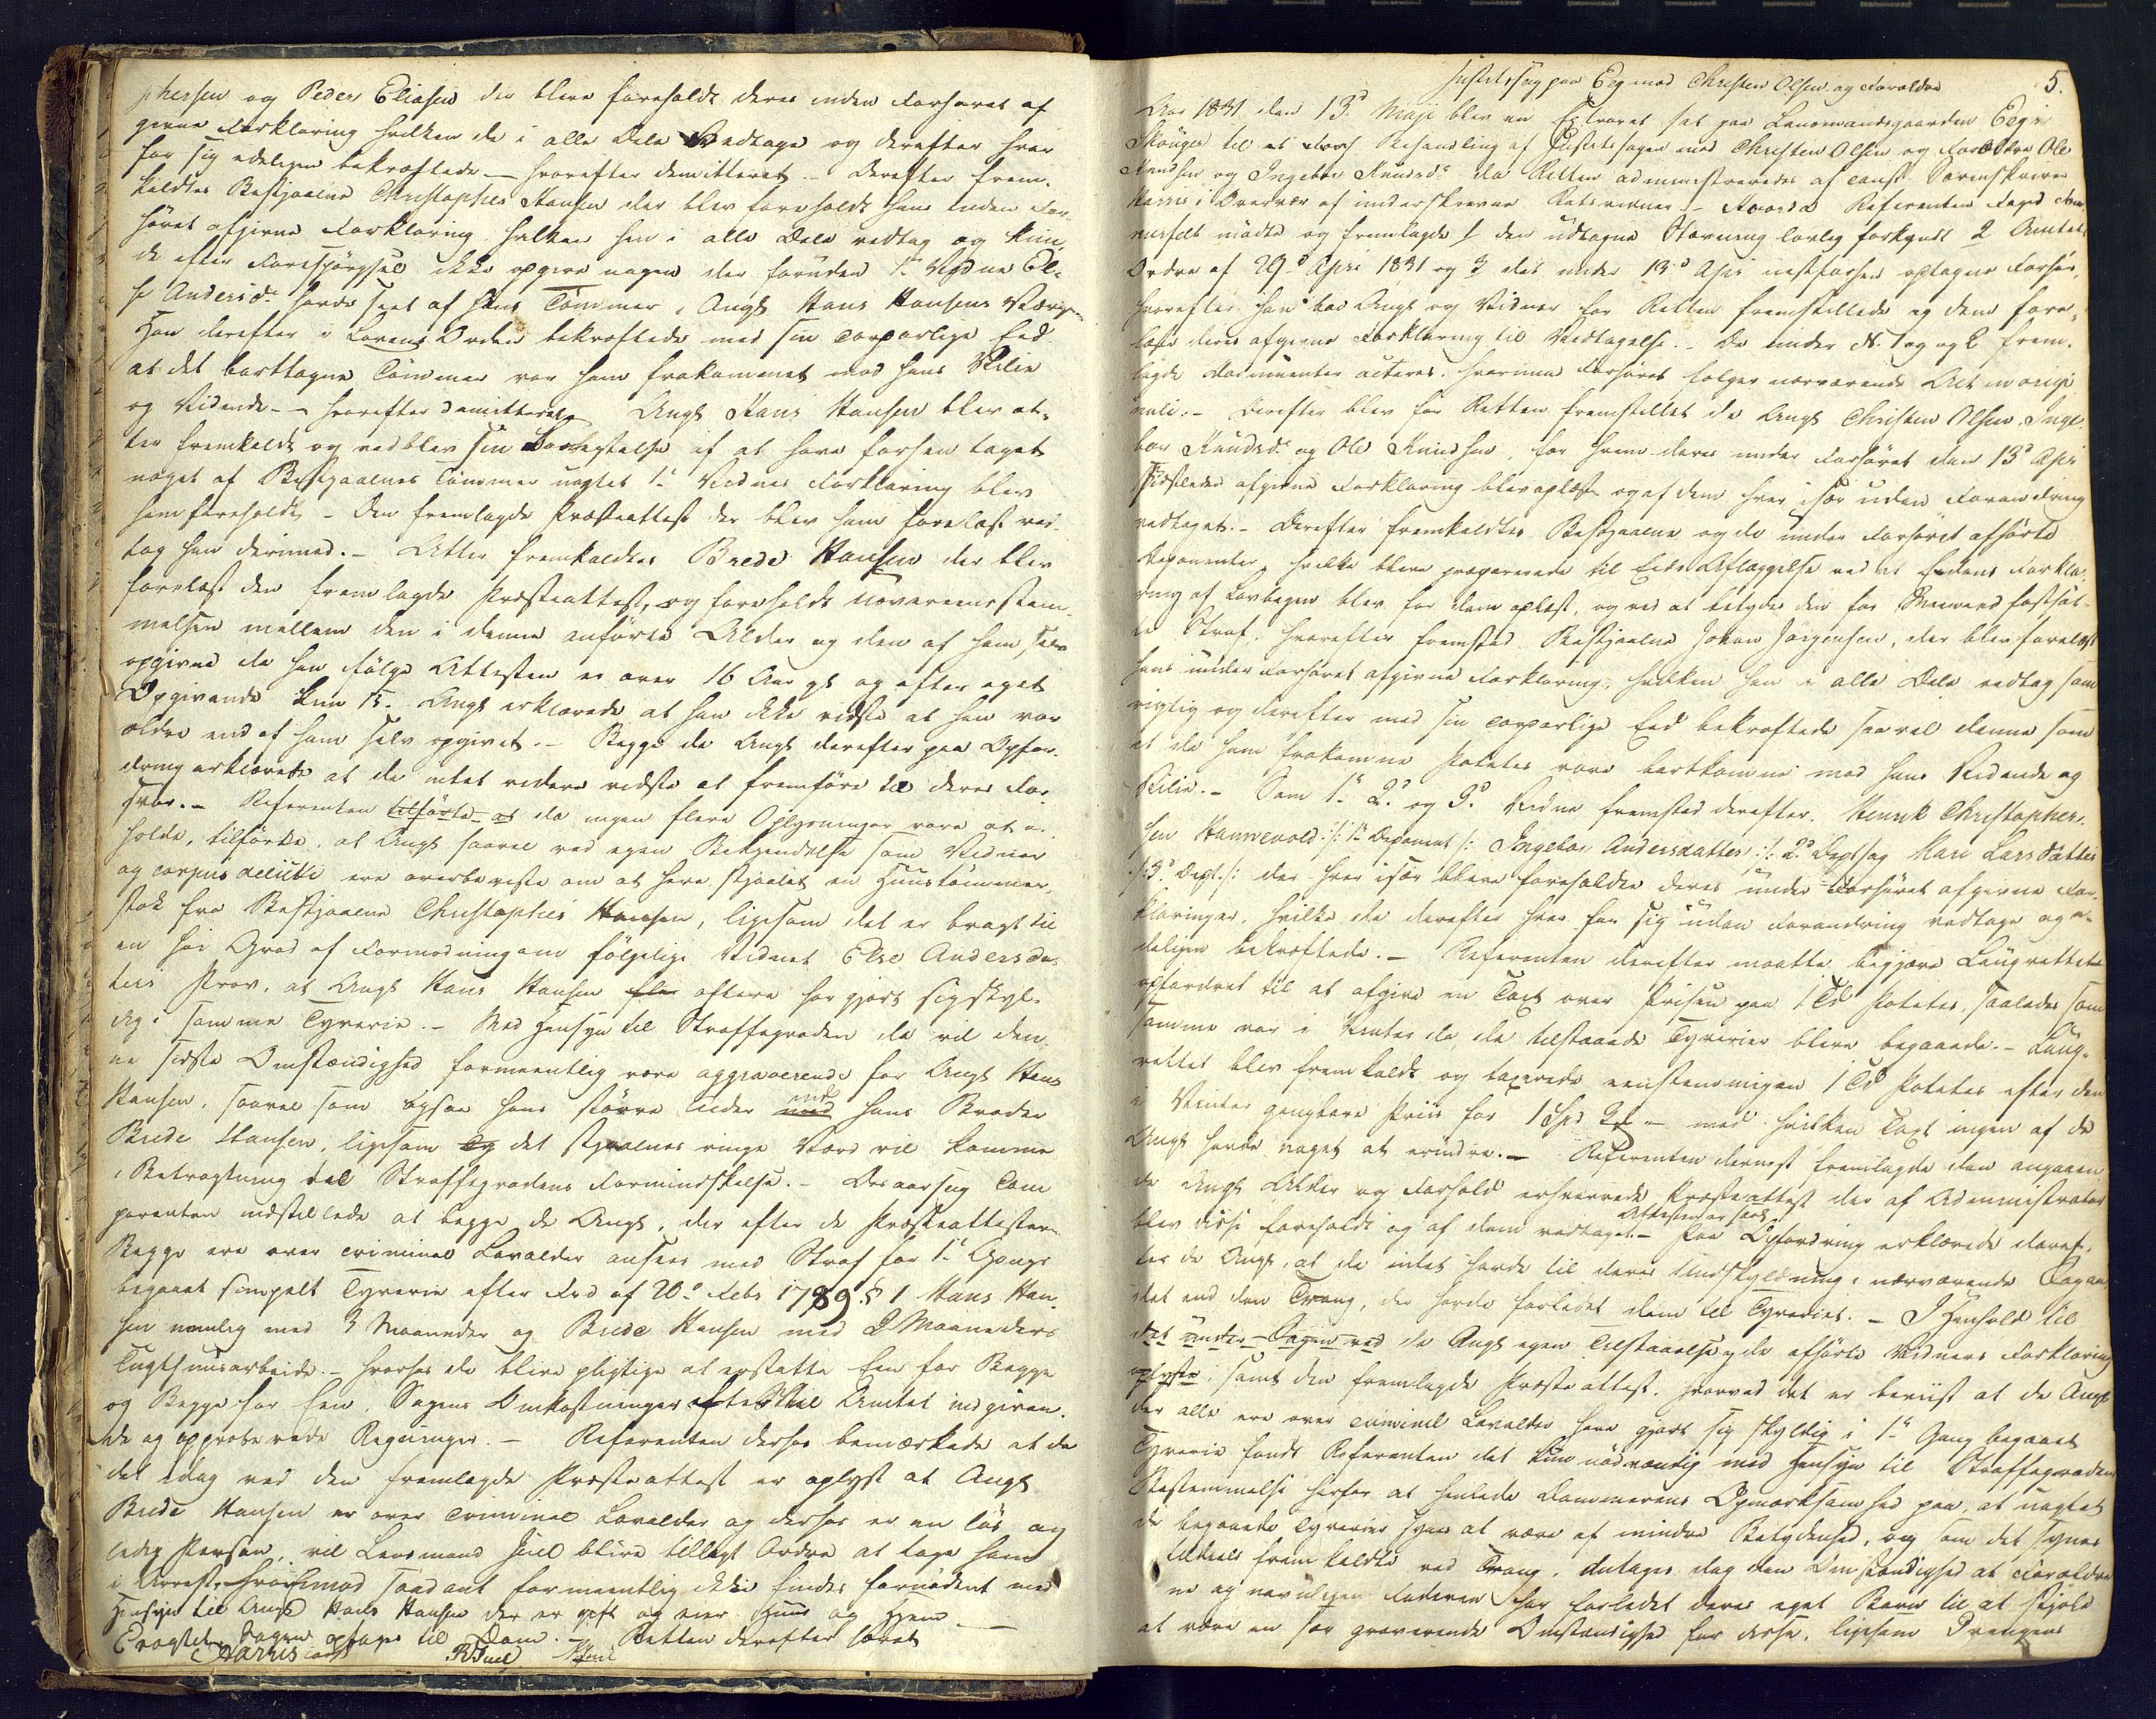 phersen og Peder Eliasen der bleve foreholdt deres under Forhøret af
givne Forklaring hvilken de i alle Dele vedtage og derefter hver
for sig edeligen bekræftede — hvorefter demitteret. — Derefter frem-
kaldtes Bestjaalne Christopher Hansen der blev foreholdt hans under For-
høret afgivne Forklaring hvilken han i alle Dele vedtog og kun-
de efter Forespørgsel ikke opgive nogen der foruden 1te Vidne El-
se Andersd: havde seet af hans Tømmer i Angts Hans Hansens Værge
Han derefter i Lovens Orden bekræftede med sin corporlige Eed
at det borttagne Tømmer var ham frakommet mod hans Villie
og Vidende. — hvorefter demitteret. Angts Hans Hansen blev at-
ter fremkaldt og vedblev sin Benegtelse af at have forhen taget
noget af Bestjaalnes Tømmer uagtet 1te Vidnes Forklaring blev
ham foreholdt. — Den fremlagde Præsteattest der blev ham forelæst ved-
tog han derimod. — Atter fremkaldtes Brede Hansen der blev
forelæst den fremlagde Præsteattest, og foreholdt uovereensstem-
melsen mellem den i denne anførte Alder og den af ham selv
opgivne da han følge Attesten er over 16 Aar gl og efter eget
Opgivende kun 15. Angts erklærede at han ikke vidste at han var
ældre end af ham selv opgivet. — Begge de Angts derefter paa Opfor-
dring erklærede at de intet videre vidste at fremføre til deres For-
svar. — Referenten tilførte at da ingen flere Oplysninger vare at er-
holde, tilførte, at Angts saavel ved egen Bekjendelse som Vidner
og corpus delicti ere overbeviste om at have stjaalet en Huustømmer-
stok fra Bestjaalne Christopher Hansen, ligesom det er bragt til
en høi Grad af Formodning om følgelige Vidnet Else Andersdat-
ters Prov, at Angts Hans Hansen oftere har gjort sig skyl-
dig i samme Tyverie. — Med Hensyn til Straffegraden da vil den-
ne sidste Omstændighed formeentlig være aggraverende for Angts Hans
Hansen, saavel som ogsaa hans større Alder end hans Broder
Brede Hansen, ligesom og det stjaalnes ringe Værd vil komme
i Betragtning ved Straffegradens Formindskelse. — Desaarsag Com
parenten indstillede at begge de Angts, der efter de Præsteattester
Begge ere over criminel Lavalder ansees med Straf for 1te Gangs
begaaet simpelt Tyverie efter Frd af 20de Febr 1789 § 1 Hans Han-
sen nemlig med 3 Maaneder og Brede Hansen med 2 Maaneders
Tugthuusarbeide. — hvorhos de blive pligtige at erstatte Een for Begge
og Begge for Een, Sagens Omkostninger efter til Amtet indgiven-
de og approberede Regninger. — Referenten derhos bemærkede at da
det idag ved den fremlagde Præsteattest er oplyst at Angts
Brede Hansen er over criminel Lavalder og derhos er en løs og
ledig Person, vil Lensmand Juel blive tillagt Ordre at tage ham
i Arrest, hvorimod saadant formeentlig ikke findes fornødent med
Hensyn til Angts Hans Hansen der er gift og eier Huus og Hjem —
Eragtet. Sagen optages til Dom. — Retten derefter hævet
Harris const RJuel
Justitssag paa Eeg mod Christen Olsen og Forældre 5.
Aar 1831 den 13de Maji blev en Extraret sat paa Lensmandsgaarden Eeg i
Skouger til at foretage Behandling af Justitssagen mod Christen Olsen og Forældre Ole
Knudsen og Ingebor Knudsd: da Retten administreredes af const. Sorenskriver
Harris i Overvær af underskrevne Retsvidner. — Hvorda Referenten Foged
mødte og fremlagde 1 den udtagne Stævning lovlig forkyndt 2 Amtets
Ordre af 29de Apri 1831 og 3 det under 13de Apr nestforhen optagne Forhør,
hvorefter han bad Angts og Vidner for Retten fremstillede og dem fore-
læst deres afgivne Forklaring til Vedtagelse. — De under N: 1 og og 2 frem-
lagde Documenter acteres, hvorimod Forhøret følger nærværende Act in origi
nali. — Derefter blev for Retten fremstillet de Angts Christen Olsen, Inge-
bor Knudsd: og Ole Knudsen, for hvem deres under Forhøret den 13de Apr
sidstleden afgivne Forklaring blev oplæst og af dem hver især uden Forandring
vedtaget. — Derefter fremkaldtes Bestjaalne og de under Forhøret afhørte
Deponenter, hvilke bleve præparerede til Eeds Aflæggelse ved at Eedens Forkla-
ring af Lovbogen blev for dem oplæst, og ved at betydes den for Meeneed fastsat-
te Straf. Hvorefter fremstod Bestjaalne Johan Jørgensen, der blev forelæst
hans under Forhøret afgivne Forklaring, hvilken han i alle Dele vedtog som
rigtig og derefter med sin corporlige Eed bekræftede saavel denne som
at de ham frakomne Poteter vare bortkomne mod hans Vidende og
Villie. — Som 1te 2de og 3de Vidne fremstod derefter. Henrik Christopher-
sen Hannevold :/: 1te Deponent /: Ingebor Andersdatter :/: 2de Dept og Mari Larsdatter
:/: 3de Dept. /: der hver især bleve foreholdte deres under Forhøret afgivne For-
klaringer, hvilke de derefter hver for sig uden Forandring vedtage og e-
deligen bekræftede. — Referenten derefter maatte begjære Laugrettet
opfordret til at afgive en Taxt over Prisen paa 1 Td Poteter, saaledes som
samme var i Vinter da de tilstaaede Tyverier bleve begaaede. — Laug-
rettet blev fremkaldt og taxerede eenstemmigen 1 Td Poteter efter den
i Vinter gangbare Priis for 1 Spd — med hvilken Taxt ingen af de
Angts havde noget at erindre. — Referenten dernæst fremlagde den angaaen
de Angts Alder og Forhold erhvervede Præsteattest der af Administrator
blev disse foreholdt og af dem vedtaget. — Paa Opfordring erklærede deref-
ter de Angts, at de intet havde til deres Undskyldning i nærværende Sag an-
det end den Trang, der havde forledet dem til Tyveriet. — I Henhold til
de Angts egen Tilstaaelse og de afhørte Vidners Forklaring
samt den fremlagde Præsteattest, hvorved det er beviist at de Angts
der alle ere over criminel Lavalder have gjort sig skyldig i 1te Gang begaaet
Tyverie fandt Referenten det kun nødvendig med Hensyn til Straffegradens
Bestemmelse herfor at henlede Dommerens Opmærksomhed paa, at uagtet
de begaaede Tyverier synes at være af mindre Betydenhed, og som det synes
tildeels fremkaldte ved Trang, antages dog den Omstændighed at Forældre
ne og navnligen Faderen har forledet deres eget Barn til at stjæle
at være en saa graverende Omstændighed for disse, ligesom Drengens